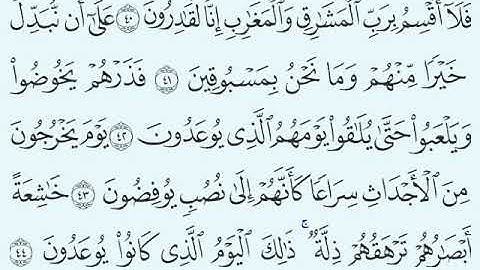 فَلَآ أُقْسِمُ بِرَبِّ ٱلْمَشَٰرِقِ وَٱلْمَغَٰرِبِ إِنَّا لَقَٰدِرُونَ ٤٠ عَلَىٰٓ أَن نُّبَدِّلَ
خَيْرًا مِّنْهُمْ وَمَا نَحْنُ بِمَسْبُوقِينَ ٤١ فَذَرْهُمْ يَخُوضُوا۟
وَيَلْعَبُوا۟ حَتَّىٰ يُلَٰقُوا۟ يَوْمَهُمُ ٱلَّذِى يُوعَدُونَ ٤٢ يَوْمَ يَخْرُجُونَ
مِنَ ٱلْأَجْدَاثِ سِرَاعًا كَأَنَّهُمْ إِلَىٰ نُصُبٍ يُوفِضُونَ ٤٣ خَٰشِعَةً
أَبْصَٰرُهُمْ تَرْهَقُهُمْ ذِلَّةٌ ۚ ذَٰلِكَ ٱلْيَوْمُ ٱلَّذِى كَانُوا۟ يُوعَدُونَ ٤٤